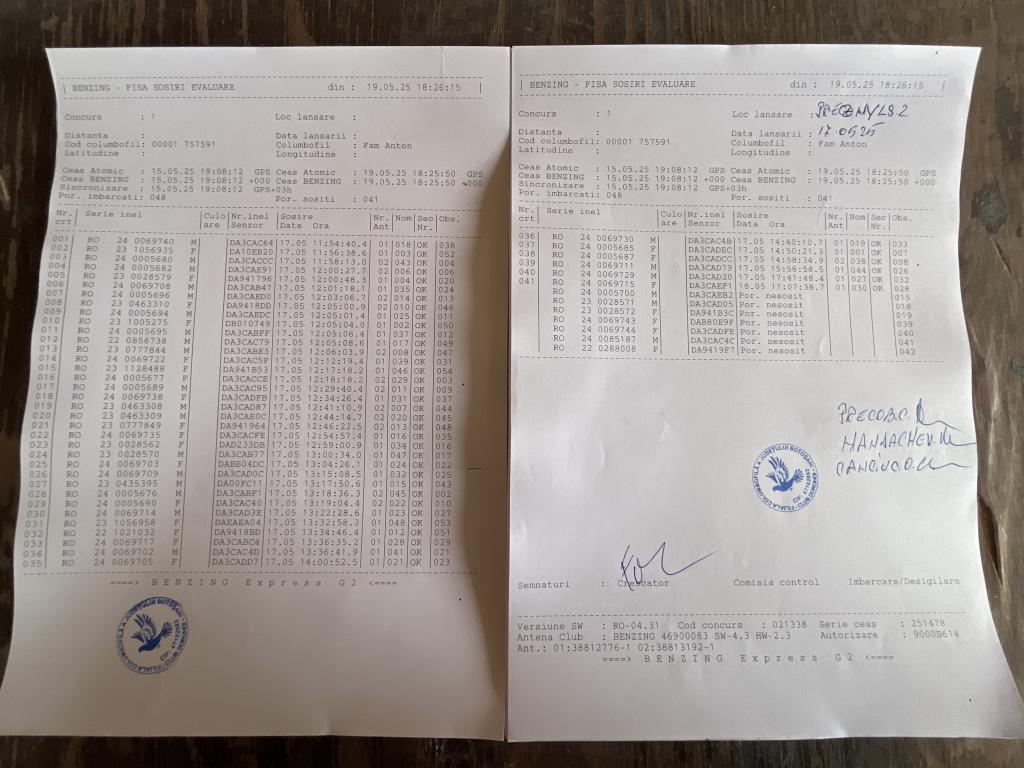 BENZING - FISA SOSIRI EVALUARE din : 19.05.25 18:26:15
Concurs : 1 Loc lansare :
Distanta : Data lansarii :
Cod columbofil: 00001 757591 Columbofil : Fam Anton
Latitudine : Longitudine :
Ceas Atomic : 15.05.25 19:08:12 GPS Ceas Atomic : 19.05.25 18:25:50 GPS
Ceas BENZING : 15.05.25 19:08:12 +000 Ceas BENZING : 19.05.25 18:25:50 +000
Sincronizare : 15.05.25 19:08:12 GPS+03h
Por. imbarcati: 048 Por. sositi : 041
Nr. Serie inel Culo Nr.inel Sosire Nr. Nom Sec Obs.
crt are Senzor Data Ora Ant Nr.
001 RO 24 0069740 M DA3CAC64 17.05 11:54:40.4 01 018 OK 038
002 RO 23 1056935 F DA10EB20 17.05 11:56:38.6 01 003 OK 052
003 RO 24 0005680 M DA3CACCC 17.05 11:58:13.0 02 043 OK 004
004 RO 24 0005682 M DA3CAE91 17.05 12:00:27.7 02 006 OK 006
005 RO 23 0028579 F DA941796 17.05 12:00:48.3 01 004 OK 020
006 RO 24 0069708 M DA3CAB47 17.05 12:01:18.1 01 035 OK 024
007 RO 24 0005696 M DA3CAED0 17.05 12:03:06.7 02 014 OK 013
008 RO 23 0463310 F DA9418DD 17.05 12:05:00.9 02 010 OK 046
009 RO 24 0005694 M DA3CAEDC 17.05 12:05:01.4 01 025 OK 011
010 RO 23 1005275 F DB010749 17.05 12:05:04.0 01 002 OK 050
011 RO 24 0005695 M DA3CABFF 17.05 12:05:06.4 01 037 OK 012
012 RO 22 0858738 M DA3CAC79 17.05 12:05:08.6 01 017 OK 049
013 RO 23 0777844 M DA3CABE3 17.05 12:06:03.9 02 008 OK 047
014 RO 24 0069722 F DA3CAC5F 17.05 12:12:19.4 01 039 OK 031
015 RO 23 1128488 F DA941B53 17.05 12:17:18.2 01 046 OK 054
016 RO 24 0005677 F DA3CACCE 17.05 12:18:18.2 02 029 OK 003
017 RO 24 0005689 M DA3CAC95 17.05 12:29:40.4 02 011 OK 009
018 RO 24 0069738 F DA3CADFB 17.05 12:34:26.4 01 031 OK 037
019 RO 23 0463308 M DA3CAD87 17.05 12:41:10.9 02 007 OK 044
020 RO 23 0463309 M DA3CAE0C 17.05 12:44:14.7 02 020 OK 045
021 RO 23 0777849 F DA941964 17.05 12:46:22.5 02 013 OK 048
022 RO 24 0069735 F DA3CACFE 17.05 12:54:57.4 01 016 OK 035
023 RO 23 0028562 F DAD233DB 17.05 12:59:00.9 01 034 OK 016
024 RO 23 0028570 M DA3CAB77 17.05 13:00:34.0 01 047 OK 017
025 RO 24 0069703 F DABB04DC 17.05 13:04:26.1 02 024 OK 022
026 RO 24 0069709 M DA3CAD0C 17.05 13:15:08.5 01 032 OK 025
027 RO 23 0435395 M DA00FC11 17.05 13:17:50.6 01 015 OK 043
028 RO 24 0005676 M DA3CABF1 17.05 13:18:36.3 02 045 OK 002
029 RO 24 0005690 F DA3CAC40 17.05 13:19:04.4 02 022 OK 010
030 RO 24 0069714 M DA3CAD3E 17.05 13:22:28.6 01 023 OK 027
031 RO 23 1056958 F DAEAEA04 17.05 13:32:58.3 01 048 OK 053
032 RO 22 1021032 F DA9418BD 17.05 13:34:46.4 01 012 OK 051
033 RO 24 0069717 F DA3CABC4 17.05 13:36:35.2 01 028 OK 029
034 RO 24 0069702 M DA3CAC4D 17.05 13:36:41.9 01 041 OK 021
035 RO 24 0069705 F DA3CADD7 17.05 14:00:52.5 01 021 OK 023
====> BENZING Express G2 <====
BENZING - FISA SOSIRI EVALUARE din : 19.05.25 18:26:15
Concurs : 1 Loc lansare :
Distanta : Data lansarii : 17.05.25
Cod columbofil: 00001 757591 Columbofil : Fam Anton
Latitudine : Longitudine :
Ceas Atomic : 15.05.25 19:08:12 GPS Ceas Atomic : 19.05.25 18:25:50 GPS
Ceas BENZING : 15.05.25 19:08:12 +000 Ceas BENZING : 19.05.25 18:25:50 +000
Sincronizare : 15.05.25 19:08:12 GPS+03h
Por. imbarcati: 048 Por. sositi : 041
Nr. Serie inel Culo Nr.inel Sosire Nr. Nom Sec Obs.
crt are Senzor Data Ora Ant Nr.
036 RO 24 0069730 M DA3CAC4B 17.05 14:40:10.7 01 019 OK 033
037 RO 24 0005685 F DA3CADEC 17.05 14:50:21.3 01 001 OK 007
038 RO 24 0005687 F DA3CADCC 17.05 14:58:34.9 02 038 OK 008
039 RO 24 0069711 M DA3CAD79 17.05 15:56:58.5 01 044 OK 026
040 RO 24 0069729 M DA3CAD20 17.05 17:41:48.4 01 027 OK 032
041 RO 24 0069715 F DA3CAEF1 18.05 11:07:38.7 01 030 OK 028
RO 24 0005700 M DA3CAEB2 Por. nesosit 015
RO 23 0028571 M DA3CAD05 Por. nesosit 018
RO 23 0028572 F DA941B3C Por. nesosit 019
RO 24 0069743 F DAB80E9F Por. nesosit 039
RO 24 0069744 F DA3CADFE Por. nesosit 040
RO 24 0085187 M DA3CAC4C Por. nesosit 041
RO 22 0288008 F DA9419F7 Por. nesosit 042
Semnaturi : Crescator Comisia control Imbarcare/Desigilare
Versiune SW : RO-04.31 Cod concurs : 021338 Serie ceas : 251478
Antena Club : BENZING 46900083 SW-4.3 HW-2.3 Autorizare : 9000B614
Ant.: 01:38812776-1 02:38813192-1
====> BENZING Express G2 <====